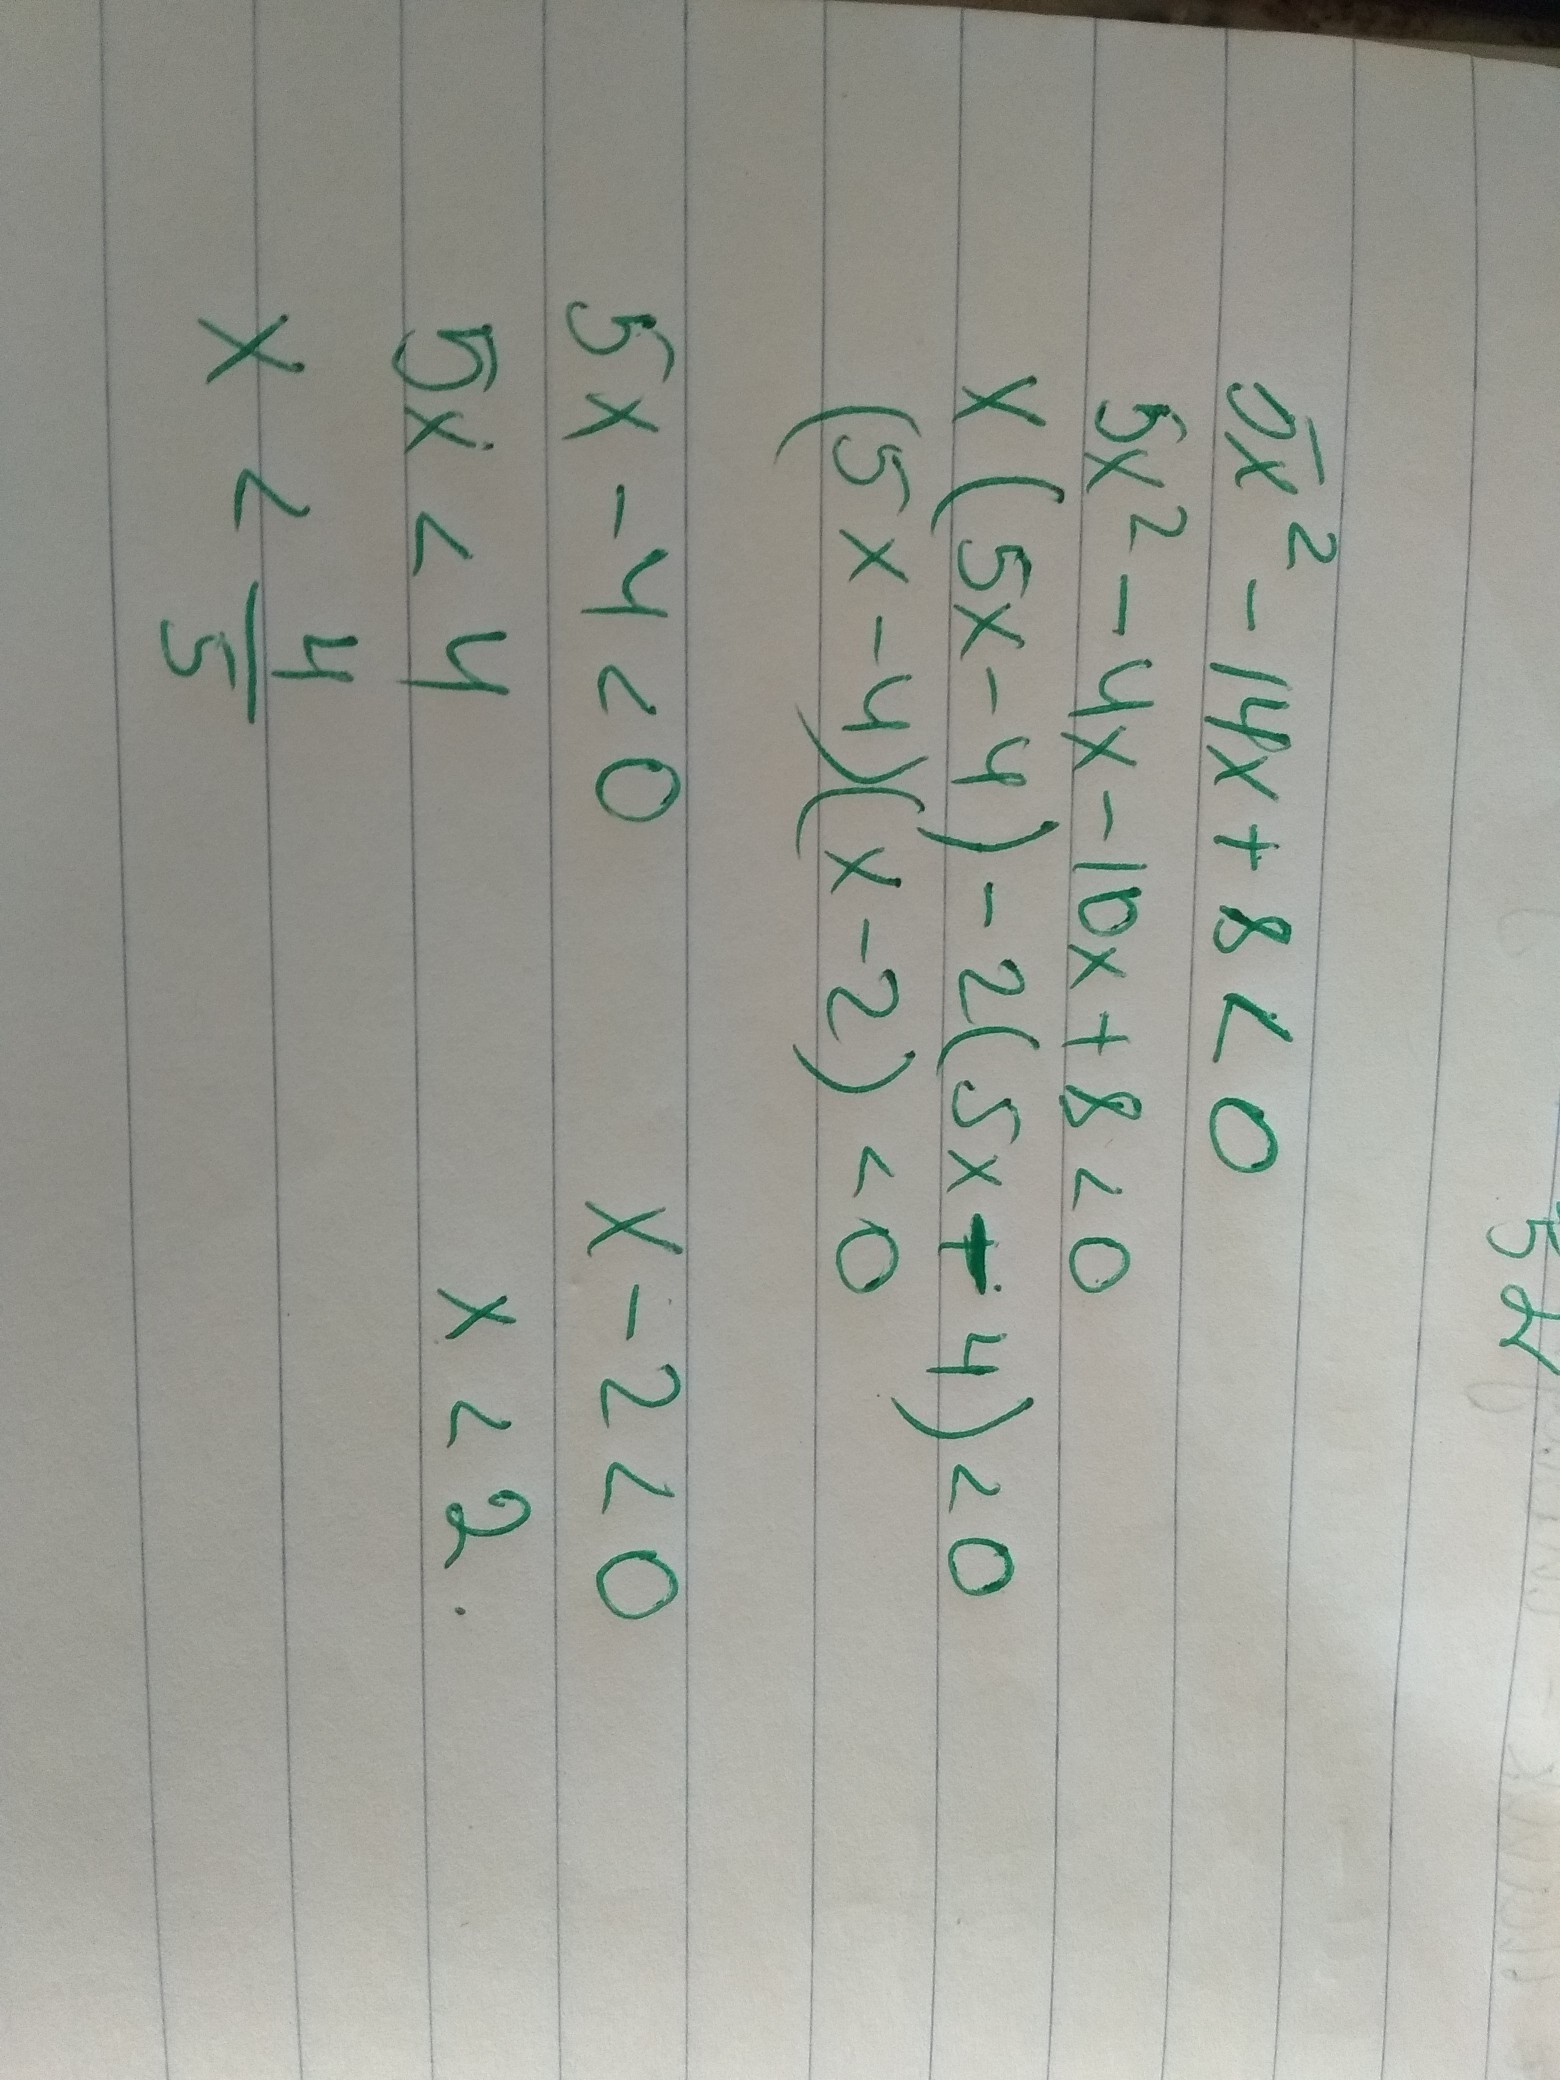 5x² - 14x + 8 < 0
5x² - 4x - 10x + 8 < 0
x (5x - 4) - 2(5x - 4) < 0
(5x - 4)(x - 2) < 0
5x - 4 < 0 x - 2 < 0
5x < 4 x < 2.
x < 4/5